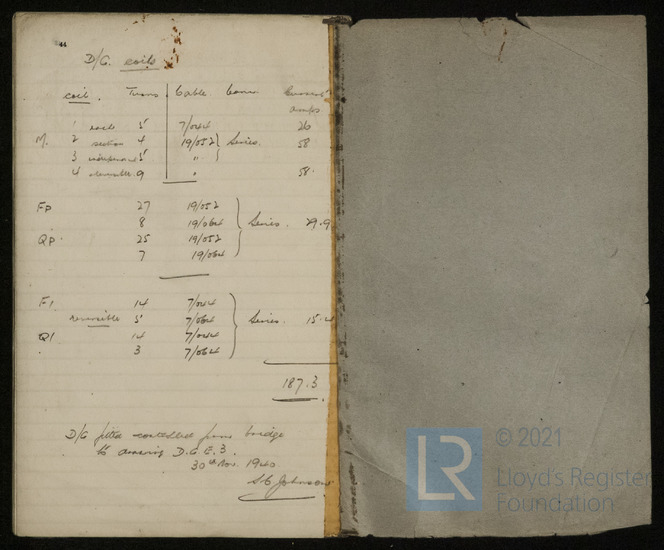 44
D/G. coils
coil. Turns Cable Conn. Current amps
1 each 5 7/044 26
M. 2 section 4 19/052 Series. 58
3 independent 5 "
4 9 " 58.
FP 27 19/052
8 19/064 Series. 29.9
QP. 25 19/052
7 19/064
FI 14 7/044
reversible 5 7/064 Series. 15.4
QI 14 7/044
3 7/064
187.3
D/G fitted controlled from bridge
to drawing D.G.E.3.
30th Nov. 1940
Johnson
© 2021
LR Lloyd's Register
Foundation